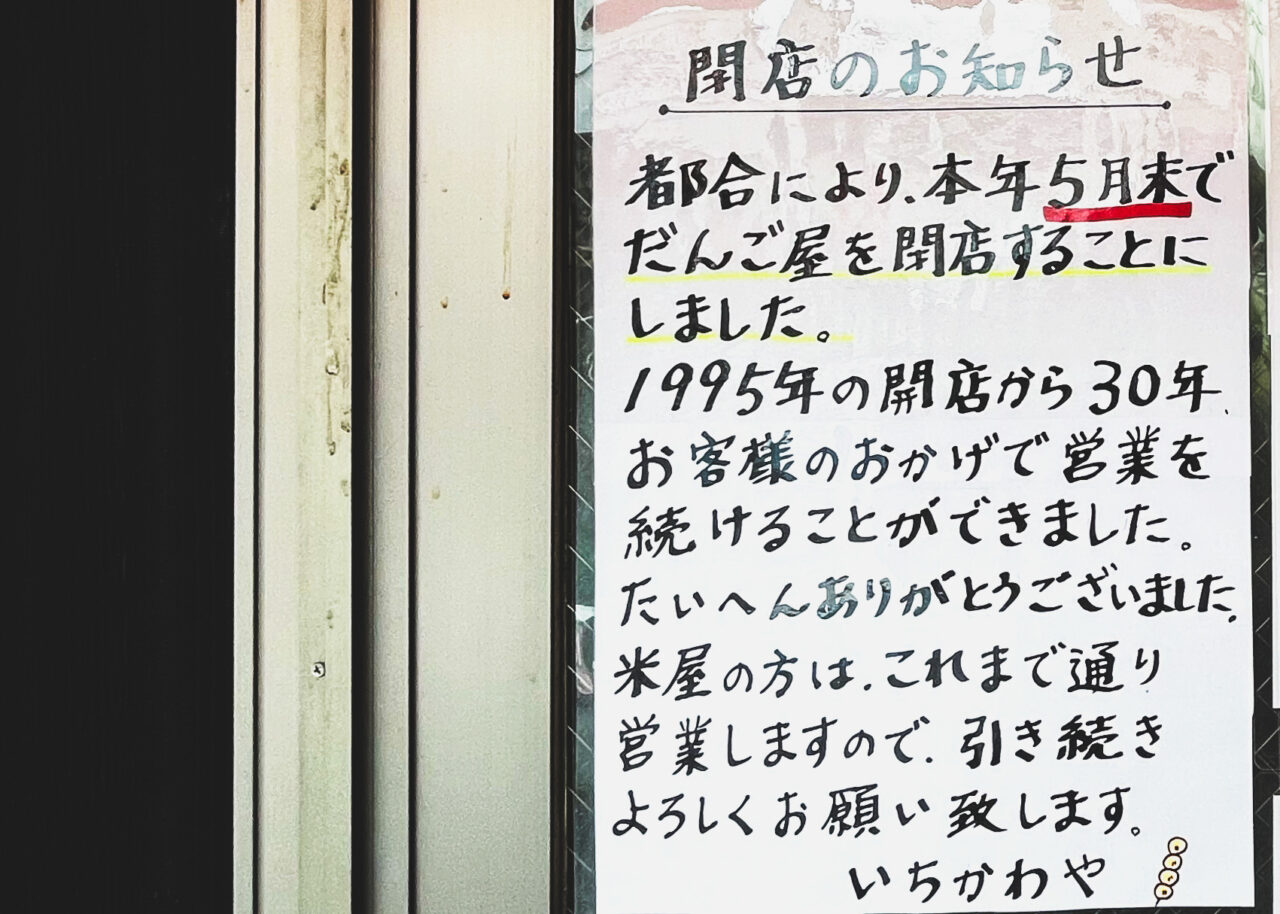 閉店のお知らせ
都合により、本年5月末で
だんご屋を閉店することに
しました。
1995年の開店から30年、
お客様のおかげで営業を
続けることができました。
たいへんありがとうございました。
米屋の方は、これまで通り
営業しますので、引き続き
よろしくお願い致します。
いちかわや